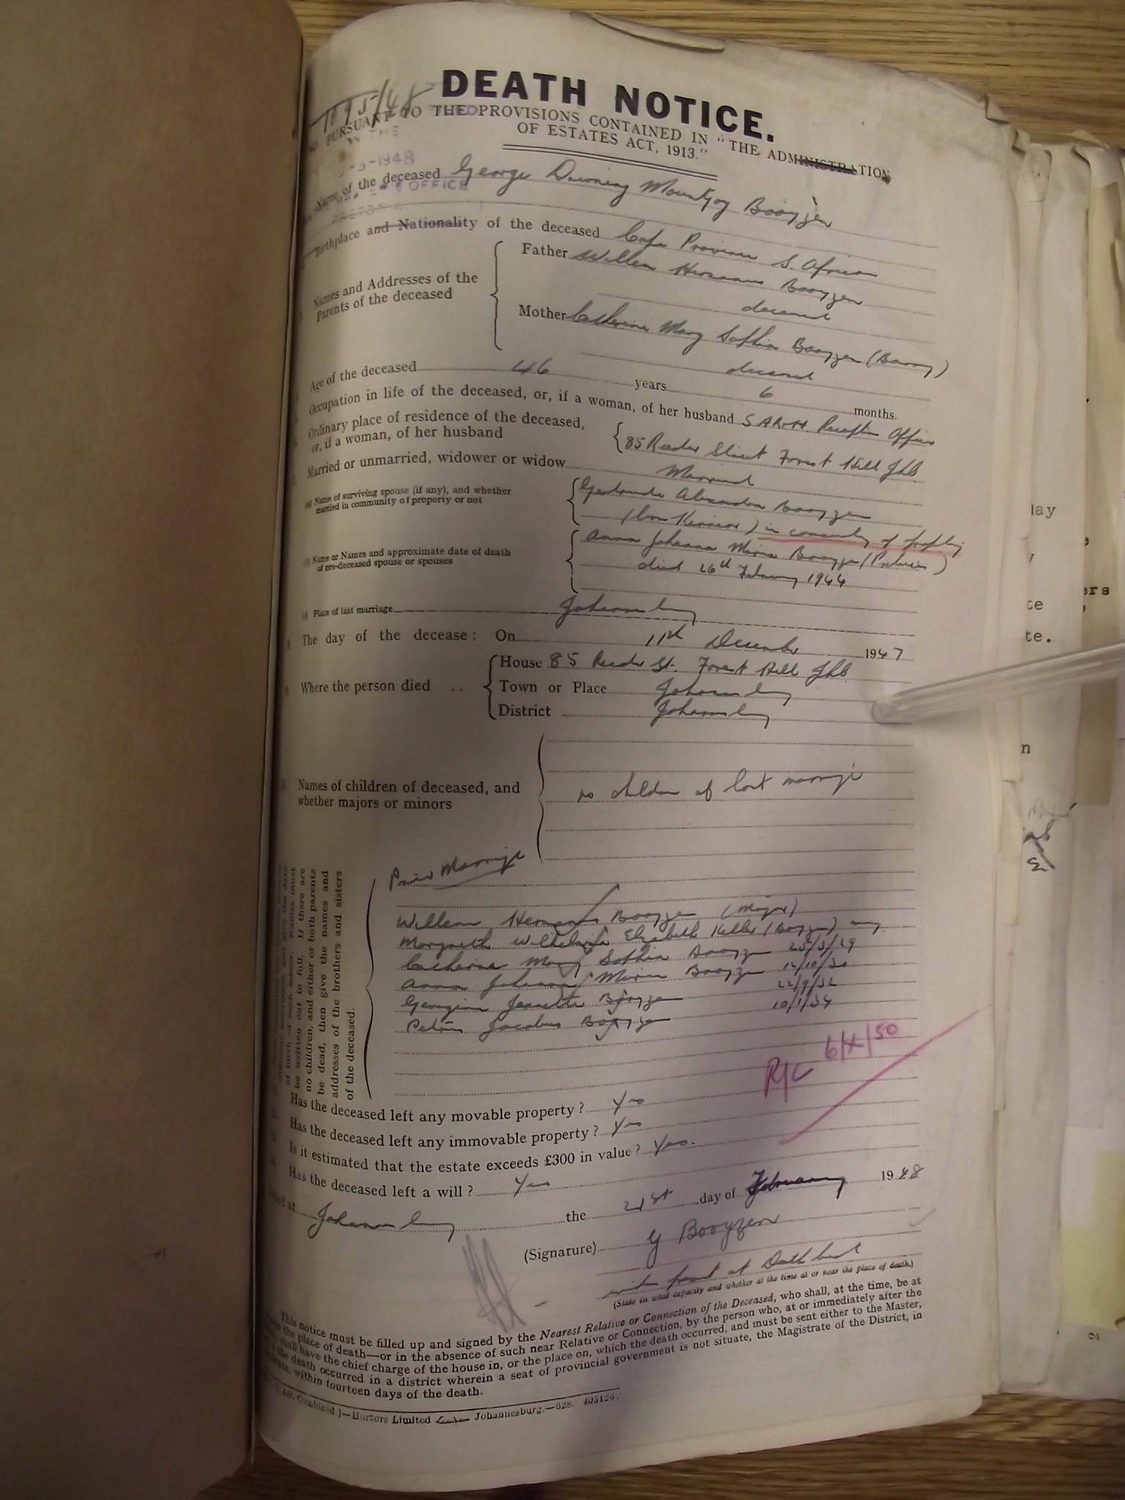 1095/48
DEATH NOTICE.
PURSUANT TO THE PROVISIONS CONTAINED IN "THE ADMINISTRATION
OF ESTATES ACT, 1913."
-1948
OFFICE
Name of the deceased George Downing Mountjoy Booyzen
Birthplace and Nationality of the deceased Cape Province S. African
Names and Addresses of the
Parents of the deceased
Father Willem Hermanus Booyzen
deceased
Mother Catherine Mary Sophia Booyzen (Barry)
deceased
Age of the deceased 46 years 6 months.
Occupation in life of the deceased, or, if a woman, of her husband S.A.R.&H. Reception Officer
Ordinary place of residence of the deceased,
or, if a woman, of her husband
85 Reeder Street Forest Hill Jhb
Married or unmarried, widower or widow Married
(a) Name of surviving spouse (if any), and whether
married in community of property or not
Booyzen
(born ) in community of property
(b) Name or Names and approximate date of death
of pre-deceased spouse or spouses
Anna Johanna Maria Booyzen (Pretorius)
died 26th February 1944
(c) Place of last marriage Johannesburg
The day of the decease: On 11th December 1947
Where the person died ..
House 85 Reeder St. Forest Hill Jhb
Town or Place Johannesburg
District Johannesburg
Names of children of deceased, and
whether majors or minors
no children of last marriage
Prior Marriage
Willem Hermanus Booyzen (Major)
Margareth Wilhelmina Elizabeth (Booyzen)
Catherine Mary Sophia Booyzen 25/3/29
Anna Johanna Maria Booyzen 12/10/30
Georgina Jeanette Booyzen 22/9/32
Petrus Jacobus Booyzen 10/1/34
be written out in full. If there are
no children, and either or both parents
be dead, then give the names and
addresses of the brothers and sisters
of the deceased.
R/C 6/X/50
Has the deceased left any movable property? Yes
Has the deceased left any immovable property? Yes
Is it estimated that the estate exceeds £300 in value? Yes.
Has the deceased left a will? Yes
Dated at Johannesburg the 21st day of February 1948
(Signature) G Booyzen
(State in what capacity and whether at the time at or near the place of death.)
This notice must be filled up and signed by the Nearest Relative or Connection of the Deceased, who shall, at the time, be at
the place of death—or in the absence of such near Relative or Connection, by the person who, at or immediately after the
shall have the chief charge of the house in, or the place on, which the death occurred, and must be sent either to the Master,
the death occurred in a district wherein a seat of provincial government is not situate, the Magistrate of the District, in
within fourteen days of the death.
Horters Limited Johannesburg.—628. 405126.